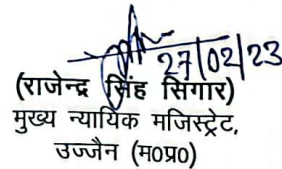 27/02/23
(राजेन्द्र सिंह सिंगार)
मुख्य न्यायिक मजिस्ट्रेट,
उज्जैन (म०प्र०)